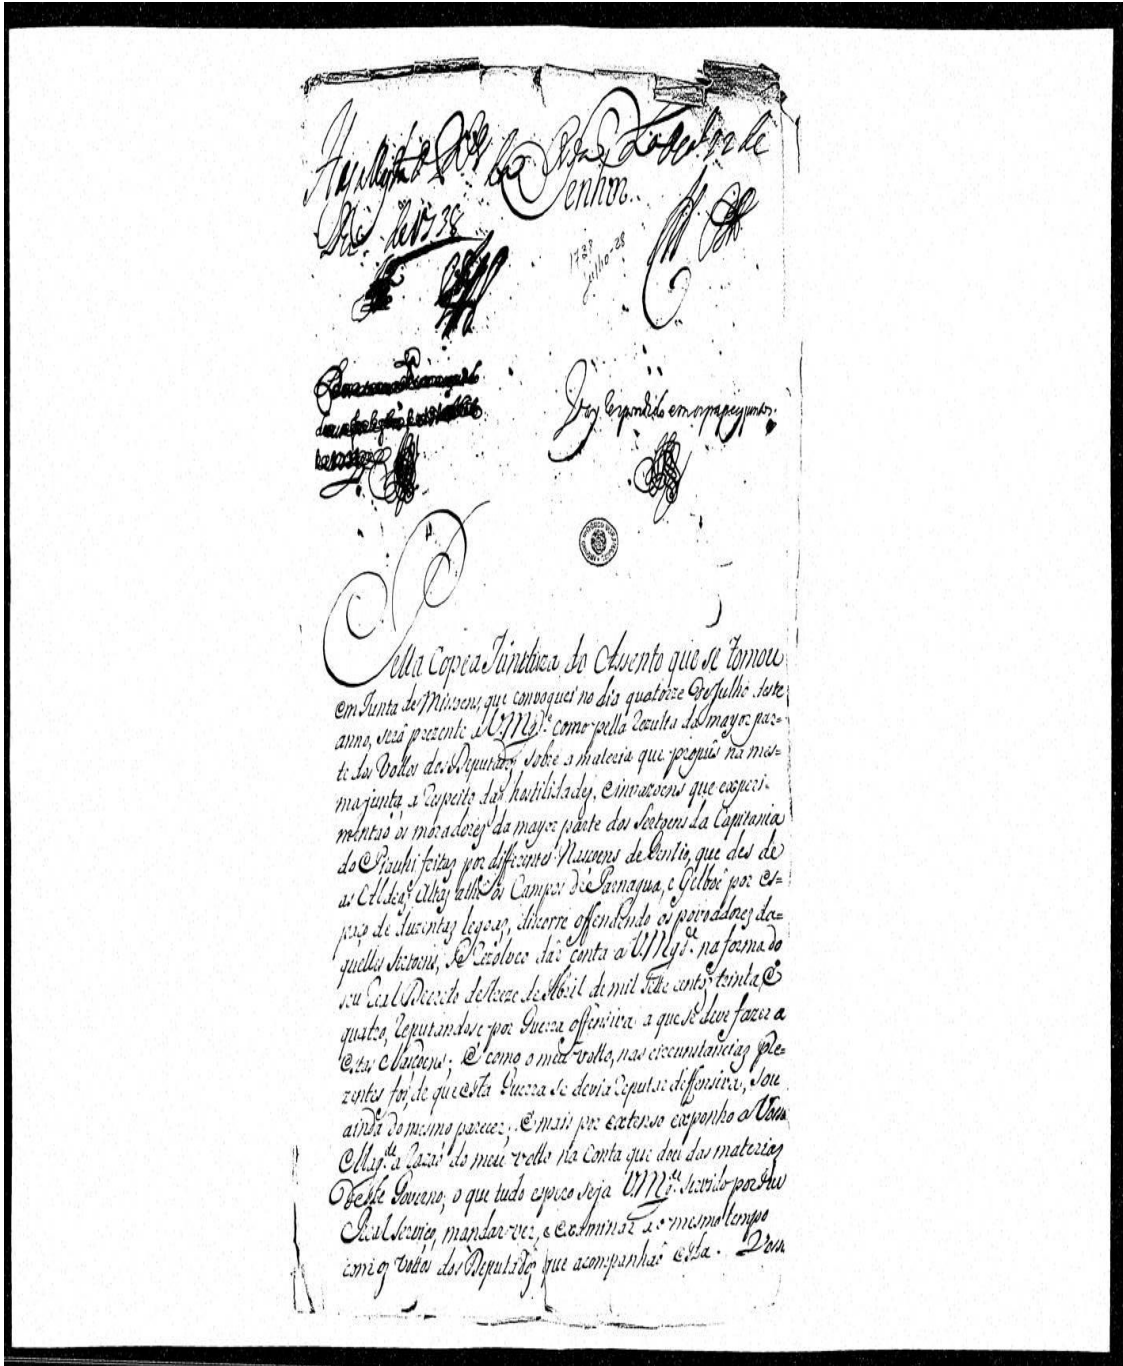 Senhor.
de 1738
1738
julho-28
Respondido em os papeis juntos.
Pella copea Junta do Asento que se tomou
em Junta de Missoens, que convoquei no dia quatorze de Julho deste
anno, será prezente a V. Mg.de como pella rezulta da mayor par-
te dos Vottos dos Deputados, sobre a materia que propûs na mes-
ma junta, a respeito das hostilidades, e invazoens que experi-
mentaõ os moradores da mayor parte dos Sertoens da Capitania
do Piauhi feitas por differentes Nasoens de Gentio, que des de
as Aldeas Altas athe os Campos de Parnagua, e Gilboê por es-
paço de duzentas legoas, discorre offendendo os povoadores da-
quelles Sertoens, se Rezolveo dár conta a V. Mg.de na forma do
seu Real Decreto de treze de Abril de mil sette centos trinta, e
quatro, Reputandose por Guerra offensiva a que se deve fazer a
estas Nasoens; E como o meu votto, nas circunstancias pre-
zentes foi, de que esta Guerra se devia reputar deffensiva, sou
ainda do mesmo parecer, E mais por extenso exponho a Vossa
Mag.de a Razaõ do meu votto na Conta que dou das materias
deste Governo; o que tudo espero seja V. Mg.de servido por seu
Real serviço, mandar ver, e examinar ao mesmo tempo
com os Vottos dos Deputados que acompanhaõ esta. Vossa